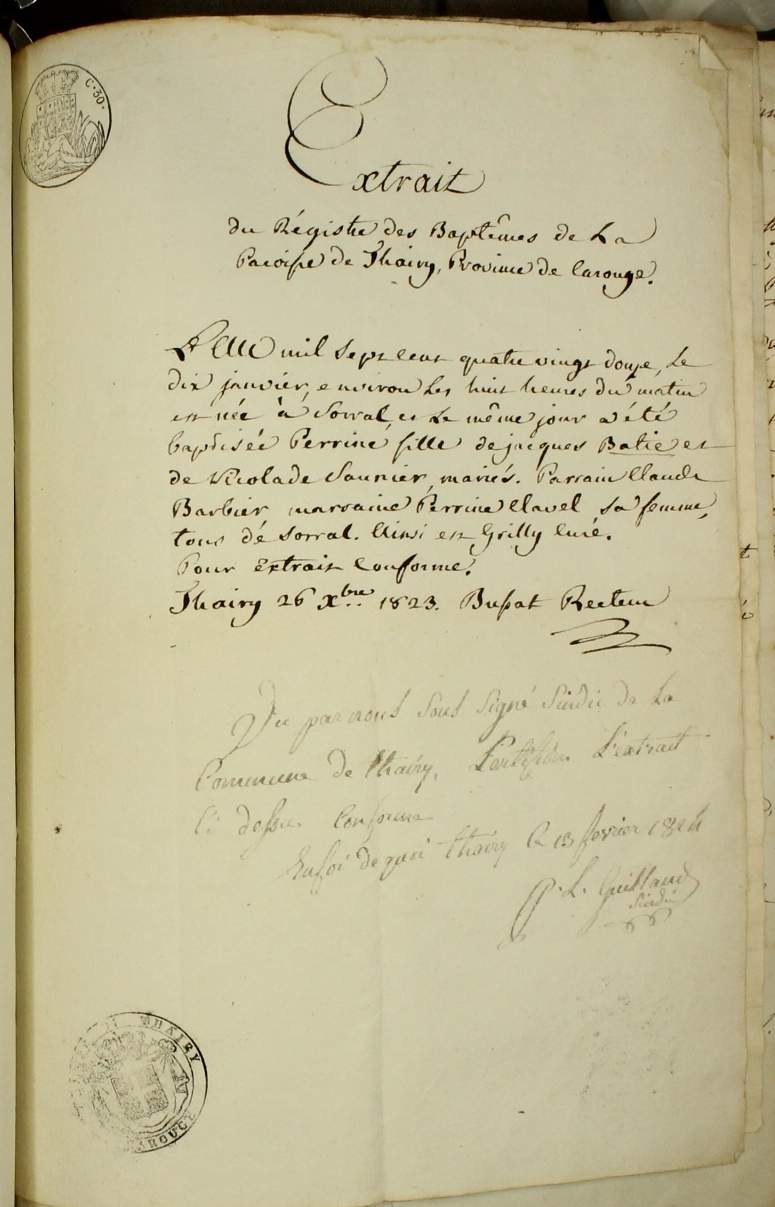 C. 30.
Extrait
du Régistre des Baptêmes de La
Paroisse de Thairy, Province de Carouge.
L'an mil sept cent quatre vingt douze, le
dix janvier, environ les huit heures du matin
est née à Sorral, et le même jour a été
baptisée Perrine fille de jacques Batie et
de Nicolade Saunier, mariés. Parrain Claude
Barbier marraine Perrine Clavel sa femme,
tous dé Sorral. Ainsi est Grilly Curé.
Pour Extrait Conforme.
Thairy 26 Xbre 1823. Bussat Recteur
Vu par nous sous signé Sindic de La
Commune de thairy, L'extrait
Ci dessus Conforme
Enfoi de quoi thairy le 13 fevrier 1824
P. L. Guilland
Sindic
THAIRY
CAROUGE